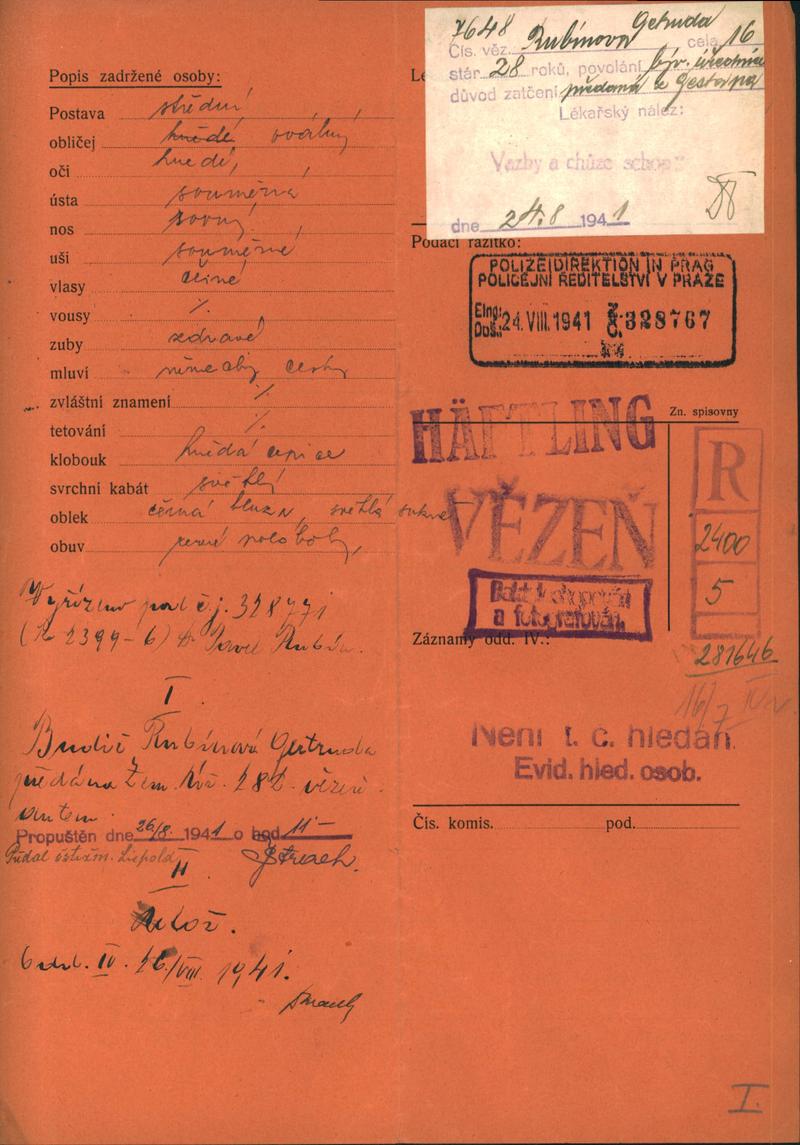 Popis zadržené osoby:
Postava střední
obličej hnědé, oválný
oči hnědé,
ústa souměrná
nos rovný
uši souměrné
vlasy černé
vousy ·/.
zuby zdravé
mluví německy česky
zvláštní znamení ·/.
tetování ·/.
klobouk hnědá čepice
svrchní kabát světlý
oblek černá bluza, světlá sukně
obuv poloboty,
Vyřízeno pod č.j. 328771
(R 2399-6) Pavel Rubín.
I
Rubínová Gertruda
předána 282 vězeň.
autem.
Propuštěn dne 26/8. 1941 o hod 11-
Předal Liepold
II
Odd. IV. 26/VIII 1941.
7648 Rubínova Getruda
Čís. věz. cela 16
stár 28 roků, povolání býv. úřednice
důvod zatčení předaná z Gestapa
Lékařský nález:
Vazby a chůze schop
dne 24.8 1941
Podací razítko:
POLIZEIDIREKTION IN PRAG
POLICEJNÍ ŘEDITELSTVÍ V PRAZE
Eing:
Doš.: 24. VIII. 1941 Č: 328767
HÄFTLING
VĚZEŇ
Zn. spisovny
R
2400
5
Daktyloskopován
a fotografován.
Záznamy odd. IV.:
281646
16/7
Není t. č. hledán.
Evid. hled. osob.
Čís. komis. pod.
I.